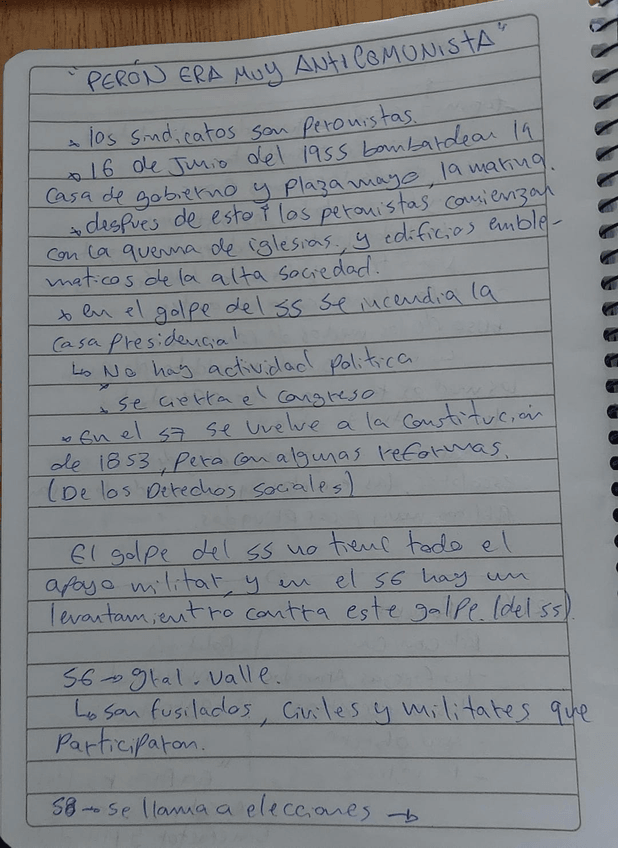 "PERÓN ERA MUY ANTICOMUNISTA"
* los sindicatos son peronistas.
* 16 de Junio del 1955 bombardean la
Casa de gobierno y Plaza mayo, la marina.
* despues de esto los peronistas comienzan
con la quema de iglesias, y edificios emble-
maticos de la alta sociedad.
* en el golpe del 55 se incendia la
casa presidencial
↳ No hay actividad politica
* se cierra el congreso
* En el 57 se vuelve a la constitucion
de 1853, pero con algunas reformas.
(De los Derechos sociales)
El golpe del 55 no tiene todo el
apoyo militar, y en el 56 hay un
levantamientro contra este golpe. (del 55)
56 → gral. valle.
↳ son fusilados, civiles y militares que
Participaron.
58 → se llama a elecciones →